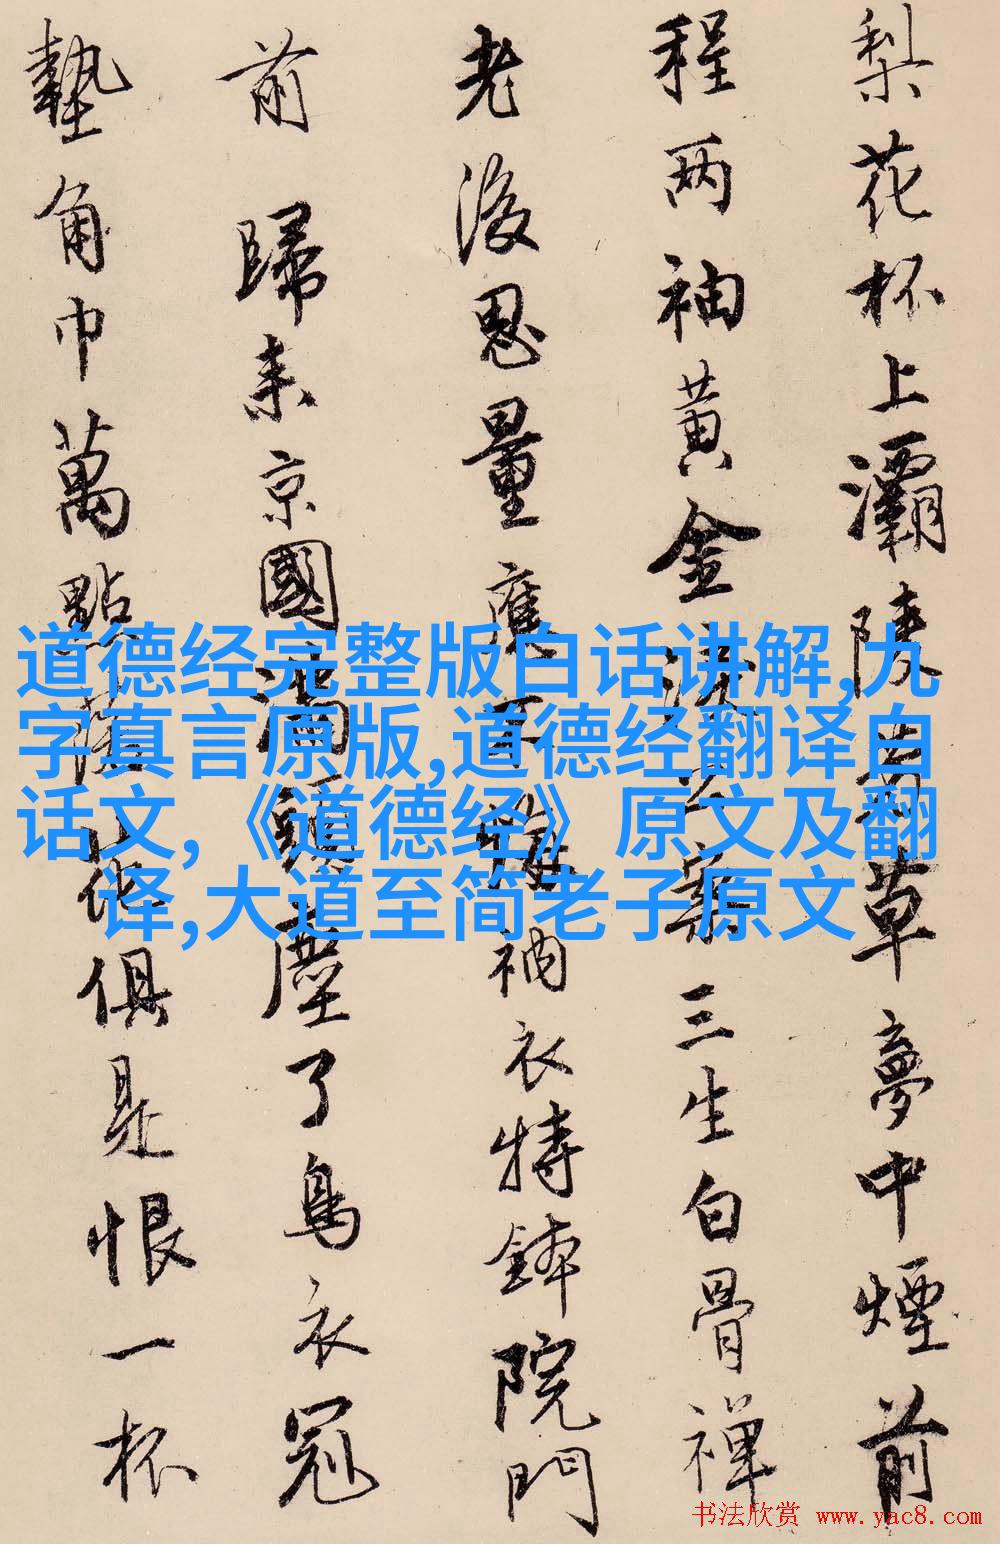 梨花杯上灞陵芳草夢中煙前
程两袖黄金淚公案三生白骨禪
老後思量應不悔衲衣持鉢院門
前 歸来京國滿頭塵了烏衣冠
墊角巾萬點落花俱是恨一杯
道德经完整版白话讲解,九
字真言原版,道德经翻译白
话文,《道德经》原文及翻
译,大道至简老子原文
书法欣赏 www.yac8.com